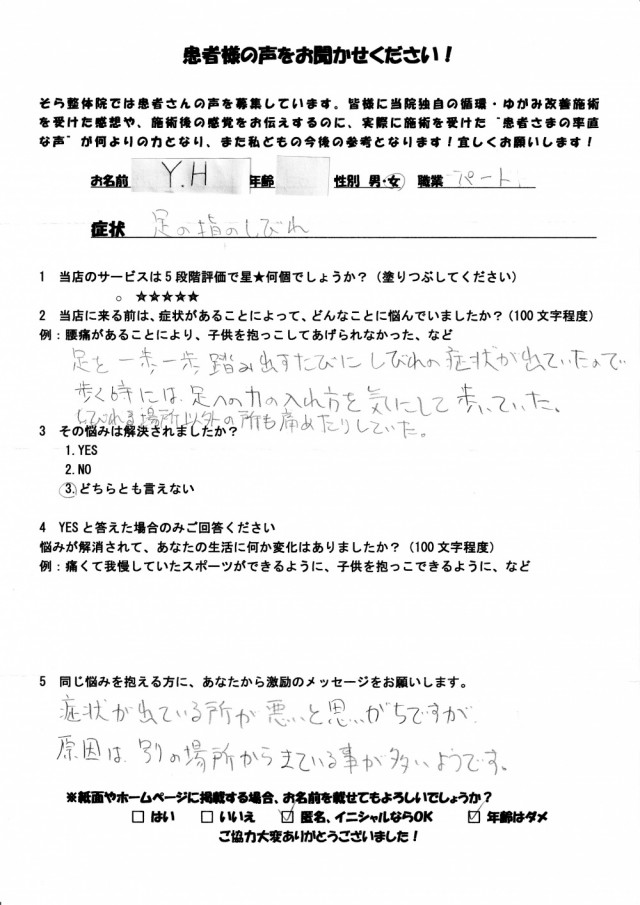 患者様の声をお聞かせください！
そら整体院では患者さんの声を募集しています。皆様に当院独自の循環・ゆがみ改善施術
を受けた感想や、施術後の感覚をお伝えするのに、実際に施術を受けた“患者さまの率直
な声”が何よりの力となり、また私どもの今後の参考となります！宜しくお願いします！
お名前 Y.H 年齢 性別 男・女 職業 パート.
症状 足の指のしびれ
1 当店のサービスは5段階評価で星★何個でしょうか？（塗りつぶしてください）
○ ★★★★★
2 当店に来る前は、症状があることによって、どんなことに悩んでいましたか？（100文字程度）
例：腰痛があることにより、子供を抱っこしてあげられなかった、など
足を一歩一歩踏み出すたびにしびれの症状が出ていたので
歩く時には、足への力の入れ方を気にして歩いていた。
しびれる場所以外の所も痛めたりしていた。
3 その悩みは解決されましたか？
1.YES
2.NO
3.どちらとも言えない
4 YESと答えた場合のみご回答ください
悩みが解消されて、あなたの生活に何か変化はありましたか？（100文字程度）
例：痛くて我慢していたスポーツができるように、子供を抱っこできるように、など
5 同じ悩みを抱える方に、あなたから激励のメッセージをお願いします。
症状が出ている所が悪いと思いがちですが、
原因は、別の場所からきている事が多いようです。
※紙面やホームページに掲載する場合、お名前を載せてもよろしいでしょうか？
□ はい □ いいえ ☑ 匿名、イニシャルならOK ☑ 年齢はダメ
ご協力大変ありがとうございました！